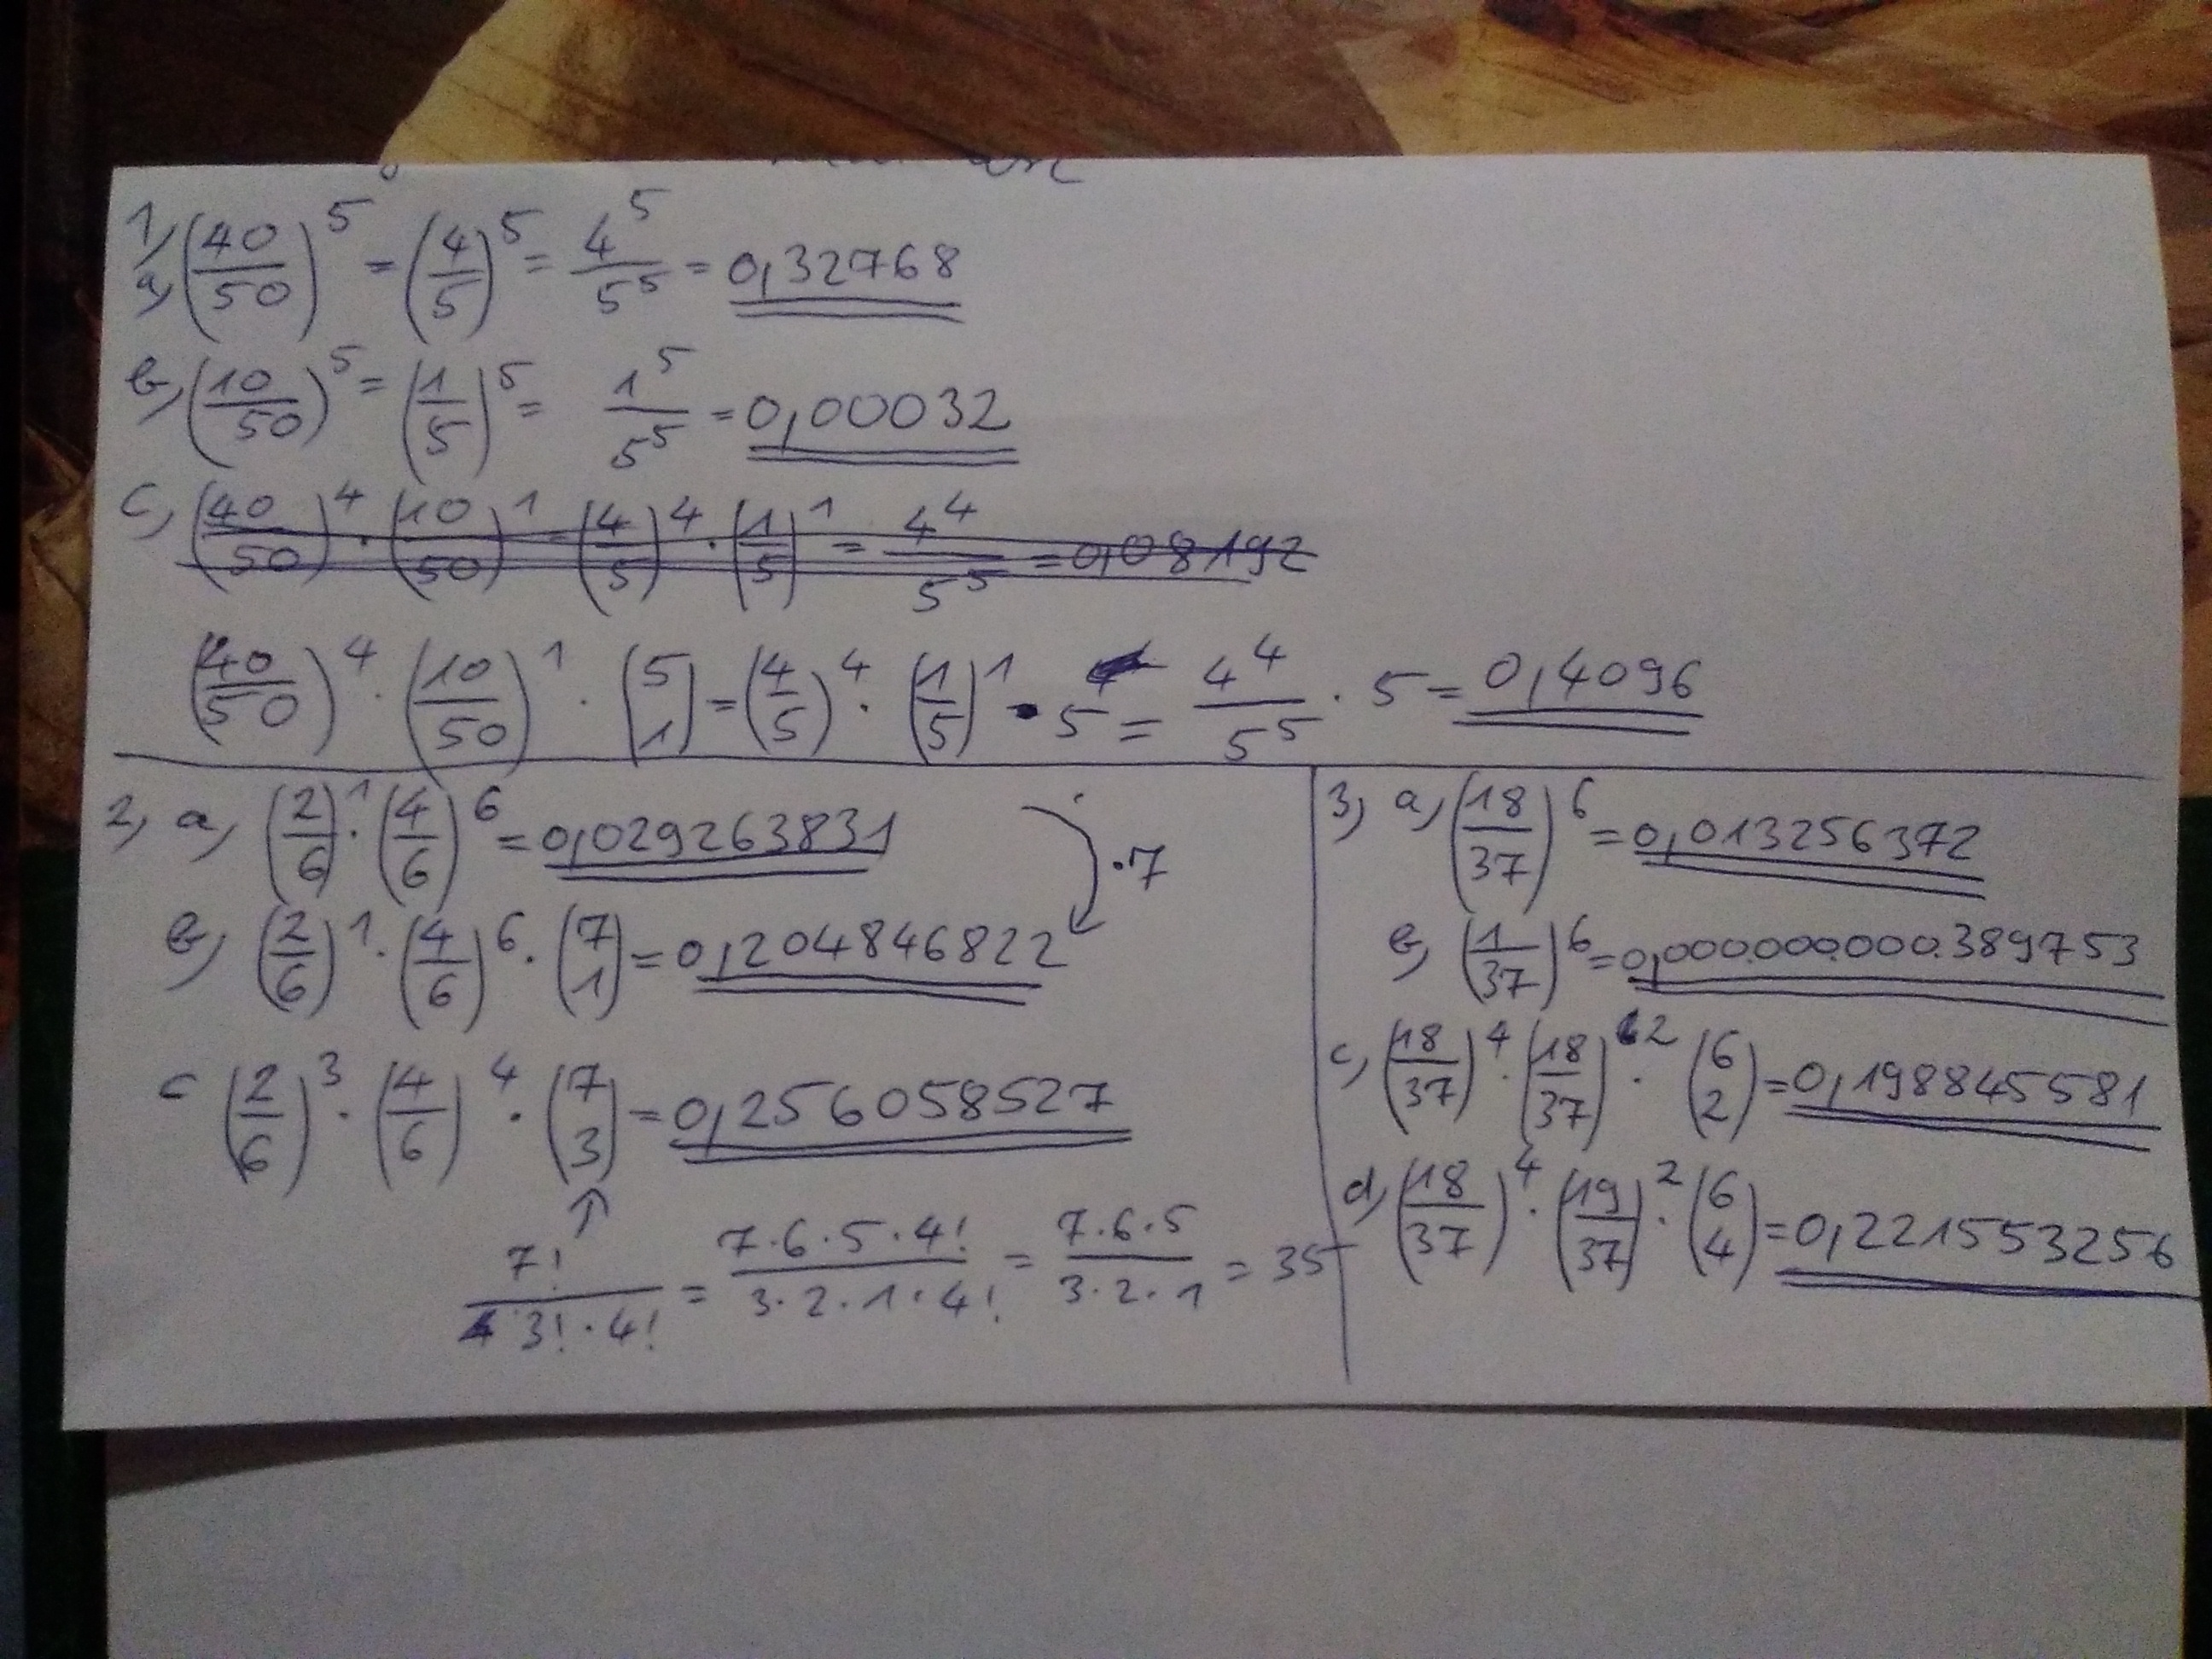 1, a, (40/50)^5 = (4/5)^5 = 4^5/5^5 = 0,32768
b, (10/50)^5 = (1/5)^5 = 1^5/5^5 = 0,00032
c, (40/50)^4 · (10/50)^1 = (4/5)^4 · (1/5)^1 = 4^4/5^5 = 0,08192
(40/50)^4 · (10/50)^1 · (5 1) = (4/5)^4 · (1/5)^1 · 5 = 4^4/5^5 · 5 = 0,4096
2, a, (2/6)^1 · (4/6)^6 = 0,029263831
·7
b, (2/6)^1 · (4/6)^6 · (7 1) = 0,204846822
c (2/6)^3 · (4/6)^4 · (7 3) = 0,256058527
↑
7!/3!·4! = 7·6·5·4!/3·2·1·4! = 7·6·5/3·2·1 = 35
3, a, (18/37)^6 = 0,013256372
b, (1/37)^6 = 0,000.000.000.389753
c, (18/37)^4 · (18/37)^2 · (6 2) = 0,198845581
d, (18/37)^4 · (19/37)^2 · (6 4) = 0,221553256